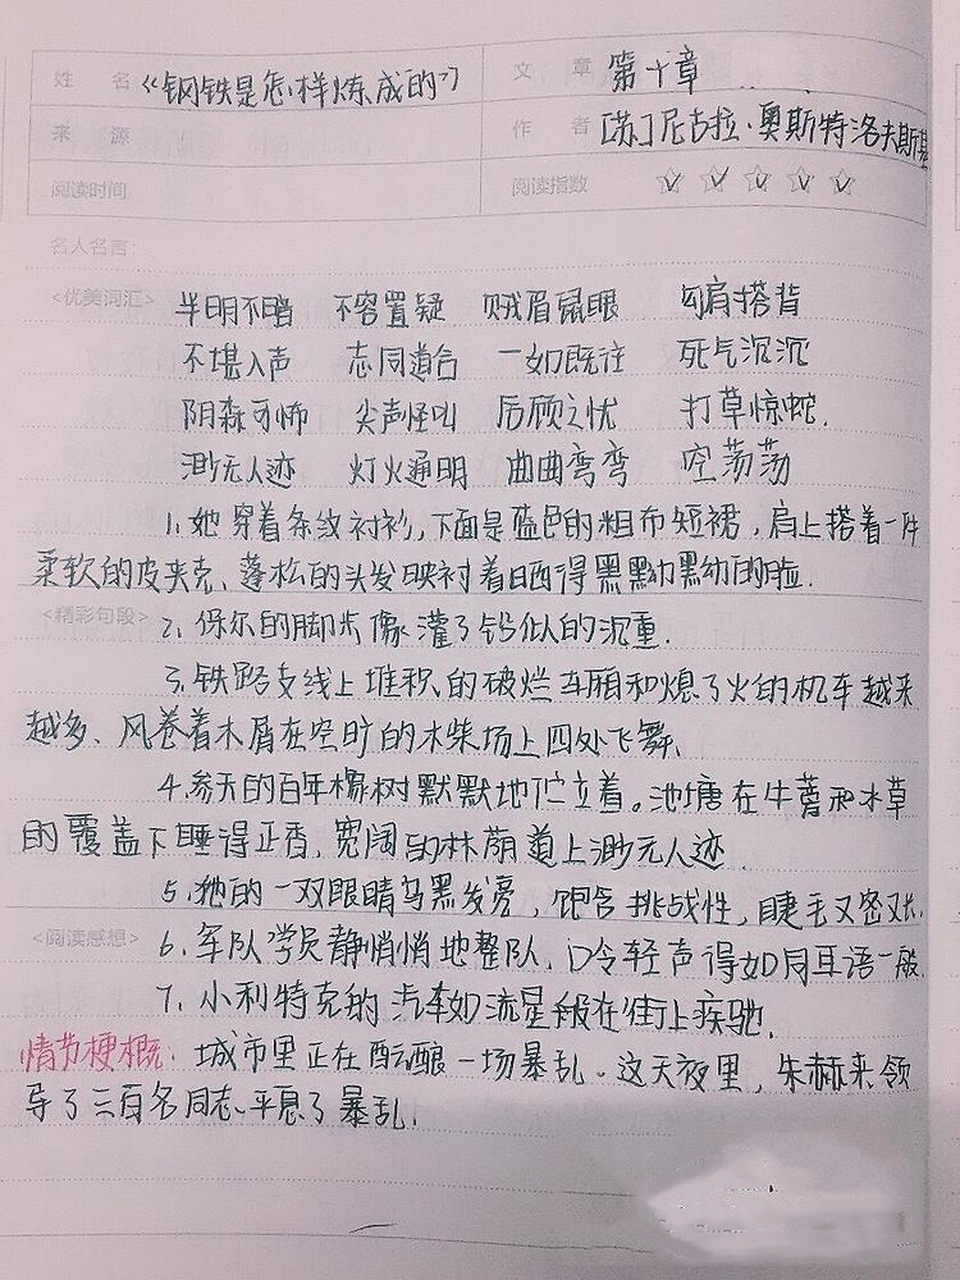 姓 名 《钢铁是怎样炼成的》 文 章 第十章
来 源 作 者 [苏]尼古拉·奥斯特洛夫斯基
阅读时间 阅读指数
名人名言:
<优美词汇> 半明不暗 不容置疑 贼眉鼠眼 勾肩搭背
不堪入声 志同道合 一如既往 死气沉沉
阴森可怖 尖声怪叫 后顾之忧 打草惊蛇.
渺无人迹 灯火通明 曲曲弯弯 空荡荡
1.她穿着条纹衬衫,下面是蓝色的粗布短裙,肩上搭着一件
柔软的皮夹克、蓬松的头发映衬着晒得黑黝黑幼的脸.
<精彩句段> 2.保尔的脚步像灌了铅似的沉重.
3.铁路支线上堆积的破烂车厢和熄了火的机车越来
越多、风卷着木屑在空旷的木柴场上四处飞舞、
4.参天的百年橡树默默地伫立着。池塘在牛蒡和水草
的覆盖下睡得正香,宽阔的林荫道上渺无人迹.
5.她的一双眼睛乌黑发亮,饱含挑战性,睫毛又密又长.
<阅读感想> 6.军队学员静悄悄地整队、口令轻声得如同耳语一般.
7.小利特克的汽车如流星般在街上疾驰.
情节梗概: 城市里正在酝酿一场暴乱。这天夜里,朱赫来领
导了三百名同志、平息了暴乱.